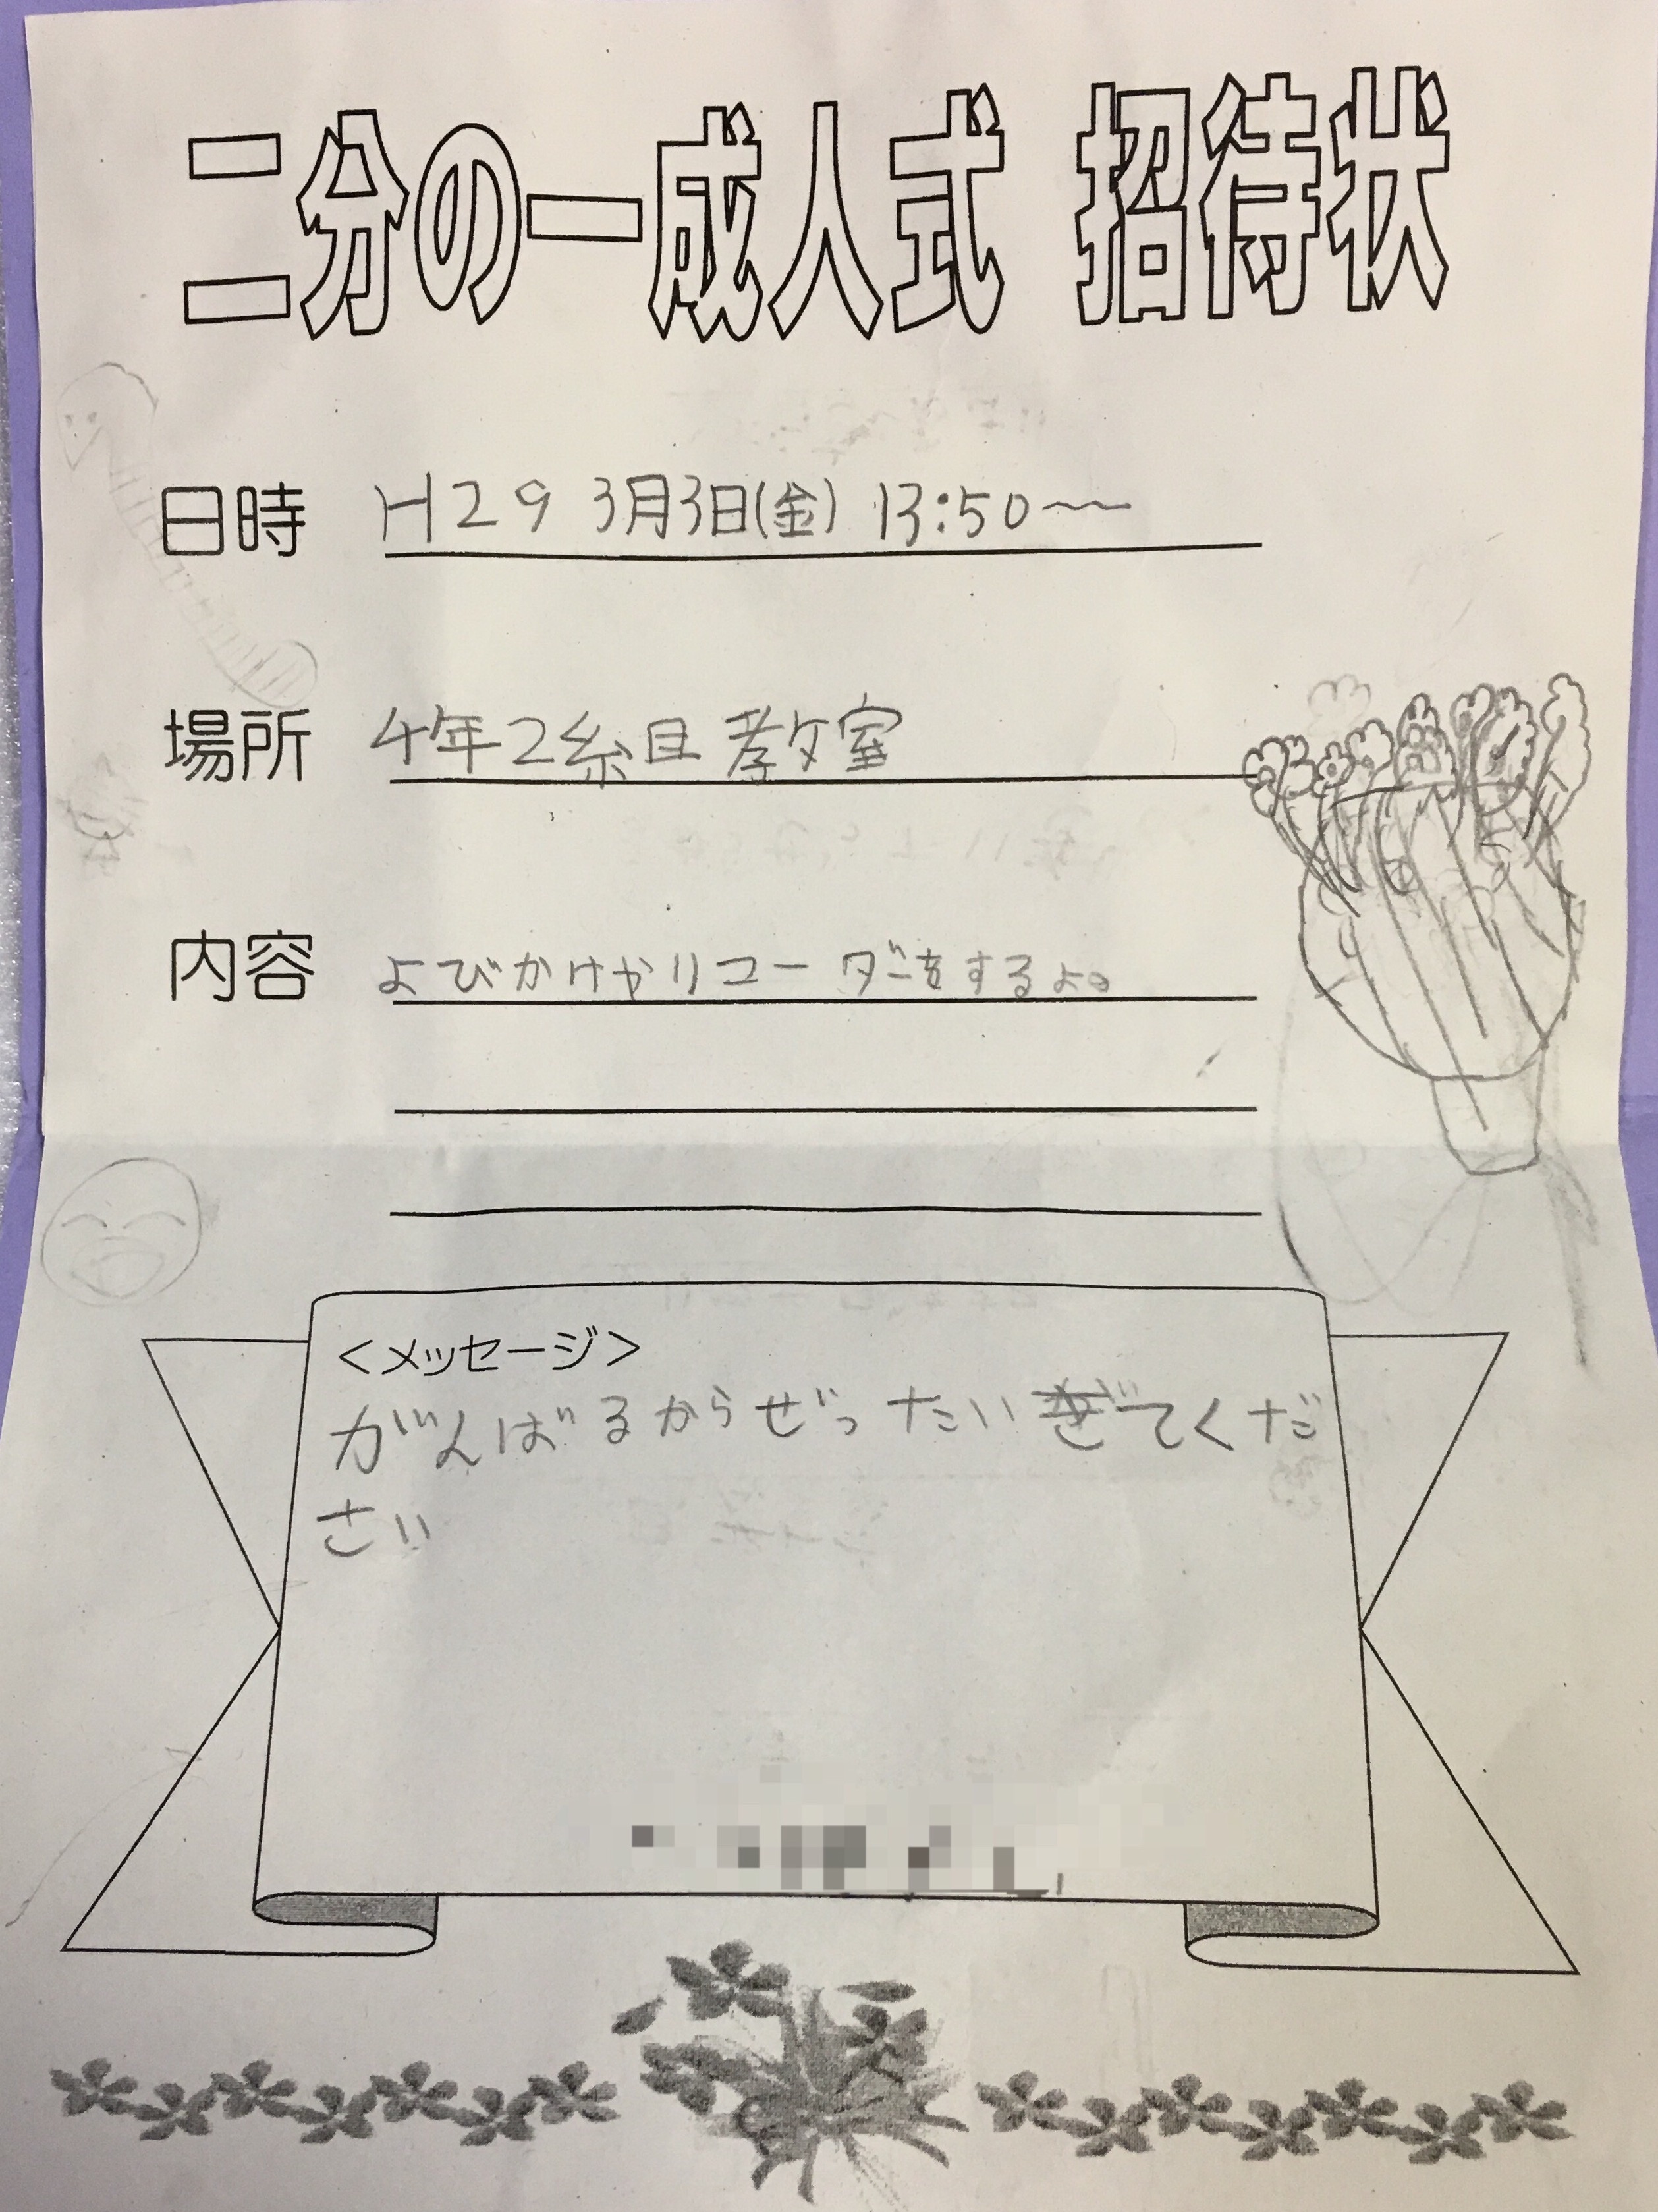 二分の一成人式 招待状
日時 H29 3月3日(金) 13:50〜
場所 4年2組 教室
内容 よびかけやリコーダーをするよ。
<メッセージ>
がんばるからぜったいきてくだ
さい